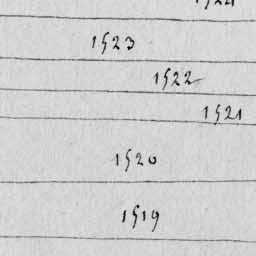 1524
1523
1522
1521
1520
1519